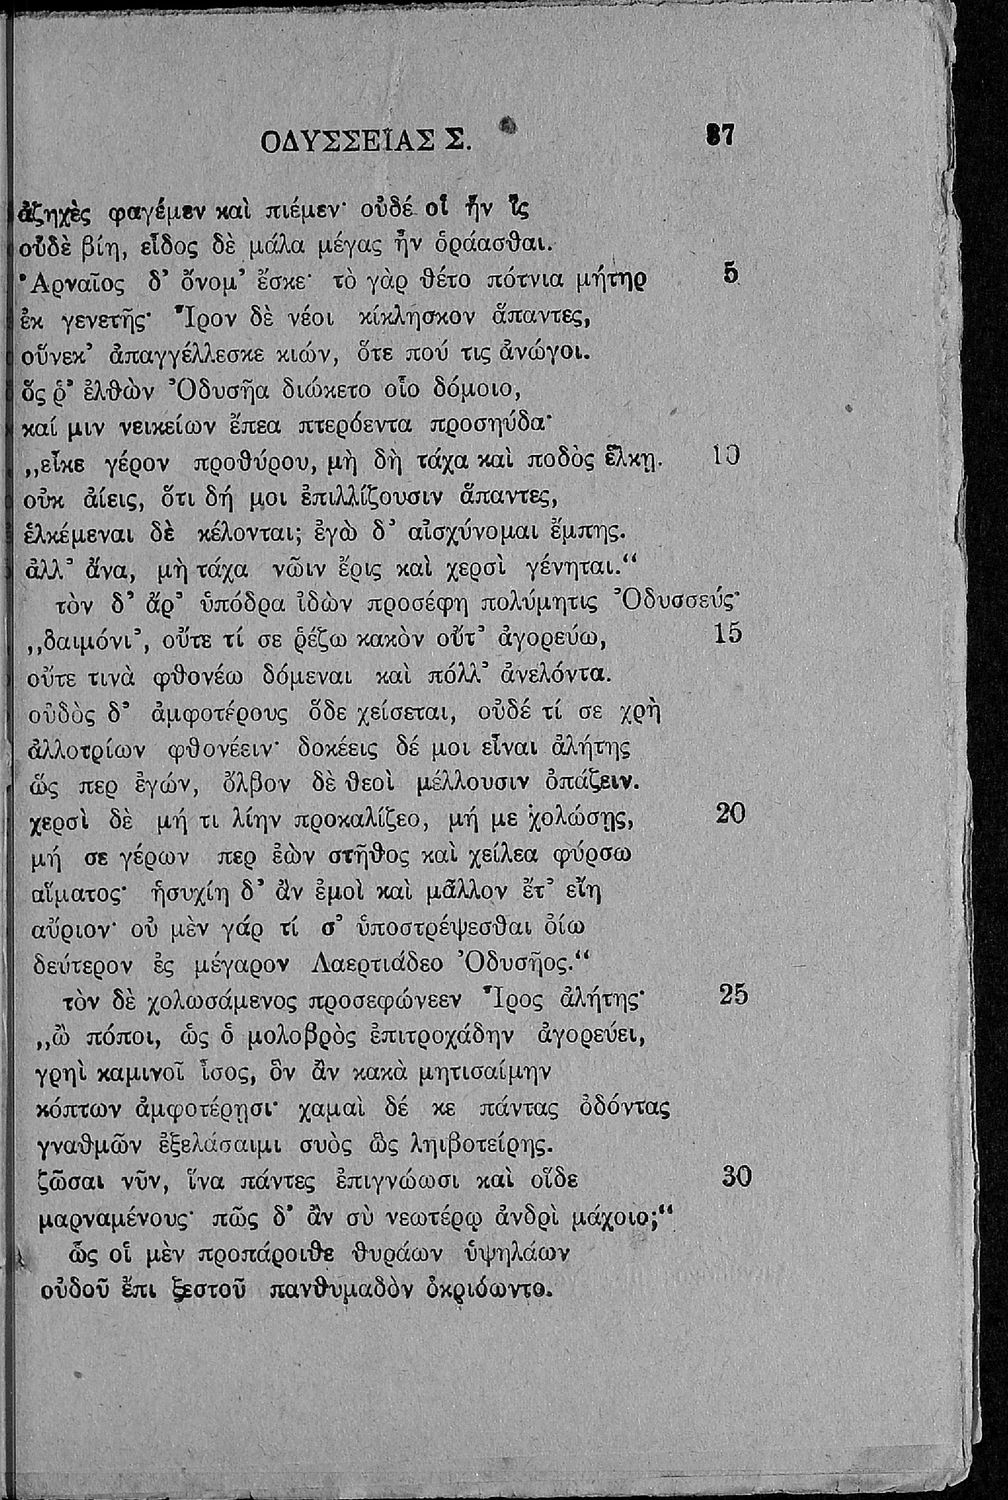 ΟΔΥΣΣΕΙΑΣ Σ. 87
ἀζηχὲς φαγέμεν καὶ πιέμεν· οὐδέ οἱ ἦν ἲς
οὐδὲ βίη, εἶδος δὲ μάλα μέγας ἦν ὁράασθαι.
Ἀρναῖος δ' ὄνομ' ἔσκε· τὸ γὰρ θέτο πότνια μήτηρ 5
ἐκ γενετῆς· Ἶρον δὲ νέοι κίκλησκον ἅπαντες,
οὕνεκ' ἀπαγγέλλεσκε κιών, ὅτε πού τις ἀνώγοι.
ὅς ῥ' ἐλθὼν Ὀδυσῆα διώκετο οἷο δόμοιο,
καί μιν νεικείων ἔπεα πτερόεντα προσηύδα·
„εἶκε γέρον προθύρου, μὴ δὴ τάχα καὶ ποδὸς ἕλκῃ. 10
οὐκ ἀίεις, ὅτι δή μοι ἐπιλλίζουσιν ἅπαντες,
ἑλκέμεναι δὲ κέλονται; ἐγὼ δ' αἰσχύνομαι ἔμπης.
ἀλλ' ἄνα, μὴ τάχα νῶιν ἔρις καὶ χερσὶ γένηται.“
τὸν δ' ἄρ' ὑπόδρα ἰδὼν προσέφη πολύμητις Ὀδυσσεύς·
„δαιμόνι', οὔτε τί σε ῥέζω κακὸν οὔτ' ἀγορεύω, 15
οὔτε τινὰ φθονέω δόμεναι καὶ πόλλ' ἀνελόντα.
οὐδὸς δ' ἀμφοτέρους ὅδε χείσεται, οὐδέ τί σε χρὴ
ἀλλοτρίων φθονέειν· δοκέεις δέ μοι εἶναι ἀλήτης
ὥς περ ἐγών, ὄλβον δὲ θεοὶ μέλλουσιν ὀπάζειν.
χερσὶ δὲ μή τι λίην προκαλίζεο, μή με χολώσῃς, 20
μή σε γέρων περ ἐὼν στῆθος καὶ χείλεα φύρσω
αἵματος· ἡσυχίη δ' ἂν ἐμοὶ καὶ μᾶλλον ἔτ' εἴη
αὔριον· οὐ μὲν γάρ τί σ' ὑποστρέψεσθαι ὀίω
δεύτερον ἐς μέγαρον Λαερτιάδεο Ὀδυσῆος.“
τὸν δὲ χολωσάμενος προσεφώνεεν Ἶρος ἀλήτης· 25
„ὢ πόποι, ὡς ὁ μολοβρὸς ἐπιτροχάδην ἀγορεύει,
γρηὶ καμινοῖ ἶσος, ὃν ἂν κακὰ μητισαίμην
κόπτων ἀμφοτέρῃσι· χαμαὶ δέ κε πάντας ὀδόντας
γναθμῶν ἐξελάσαιμι συὸς ὣς ληιβοτείρης.
ζῶσαι νῦν, ἵνα πάντες ἐπιγνώωσι καὶ οἵδε 30
μαρναμένους· πῶς δ' ἂν σὺ νεωτέρῳ ἀνδρὶ μάχοιο;“
ὣς οἱ μὲν προπάροιθε θυράων ὑψηλάων
οὐδοῦ ἔπι ξεστοῦ πανθυμαδὸν ὀκριόωντο.